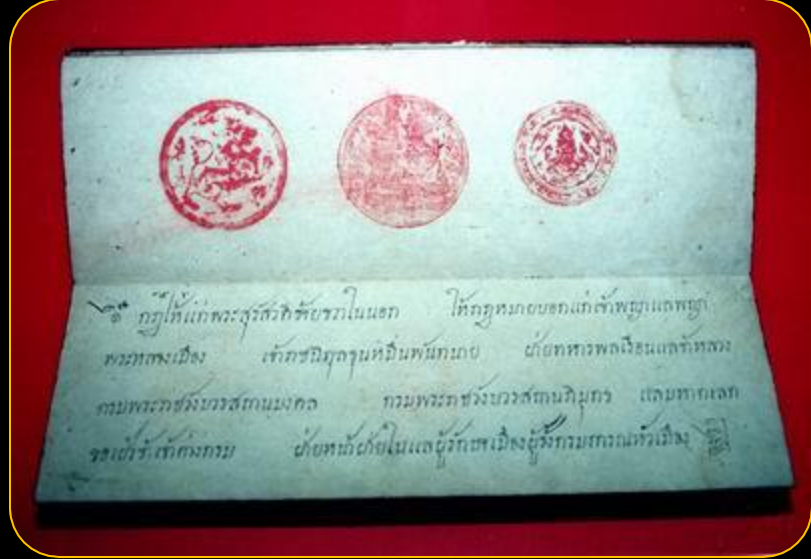 ๑ กฎให้แก่พระสุรัสวดีซ้ายขวาในนอก ให้กฎหมายบอกแก่เจ้าพญาแลพญา
พระหลวงเมือง เจ้าราชนิกูลขุนหมื่นพันทนาย ฝ่ายทหารพลเรือนแลข้าหลวง
กรมพระราชวังบวรสถานมงคล กรมพระราชวังบวรสถานภิมุกข แลมหาดเลก
ขอเฝ้าข้าเจ้าต่างกรม ฝ่ายหน้าฝ่ายในแลผู้รักษาเมืองผู้รั้งกรมการณหัวเมือง